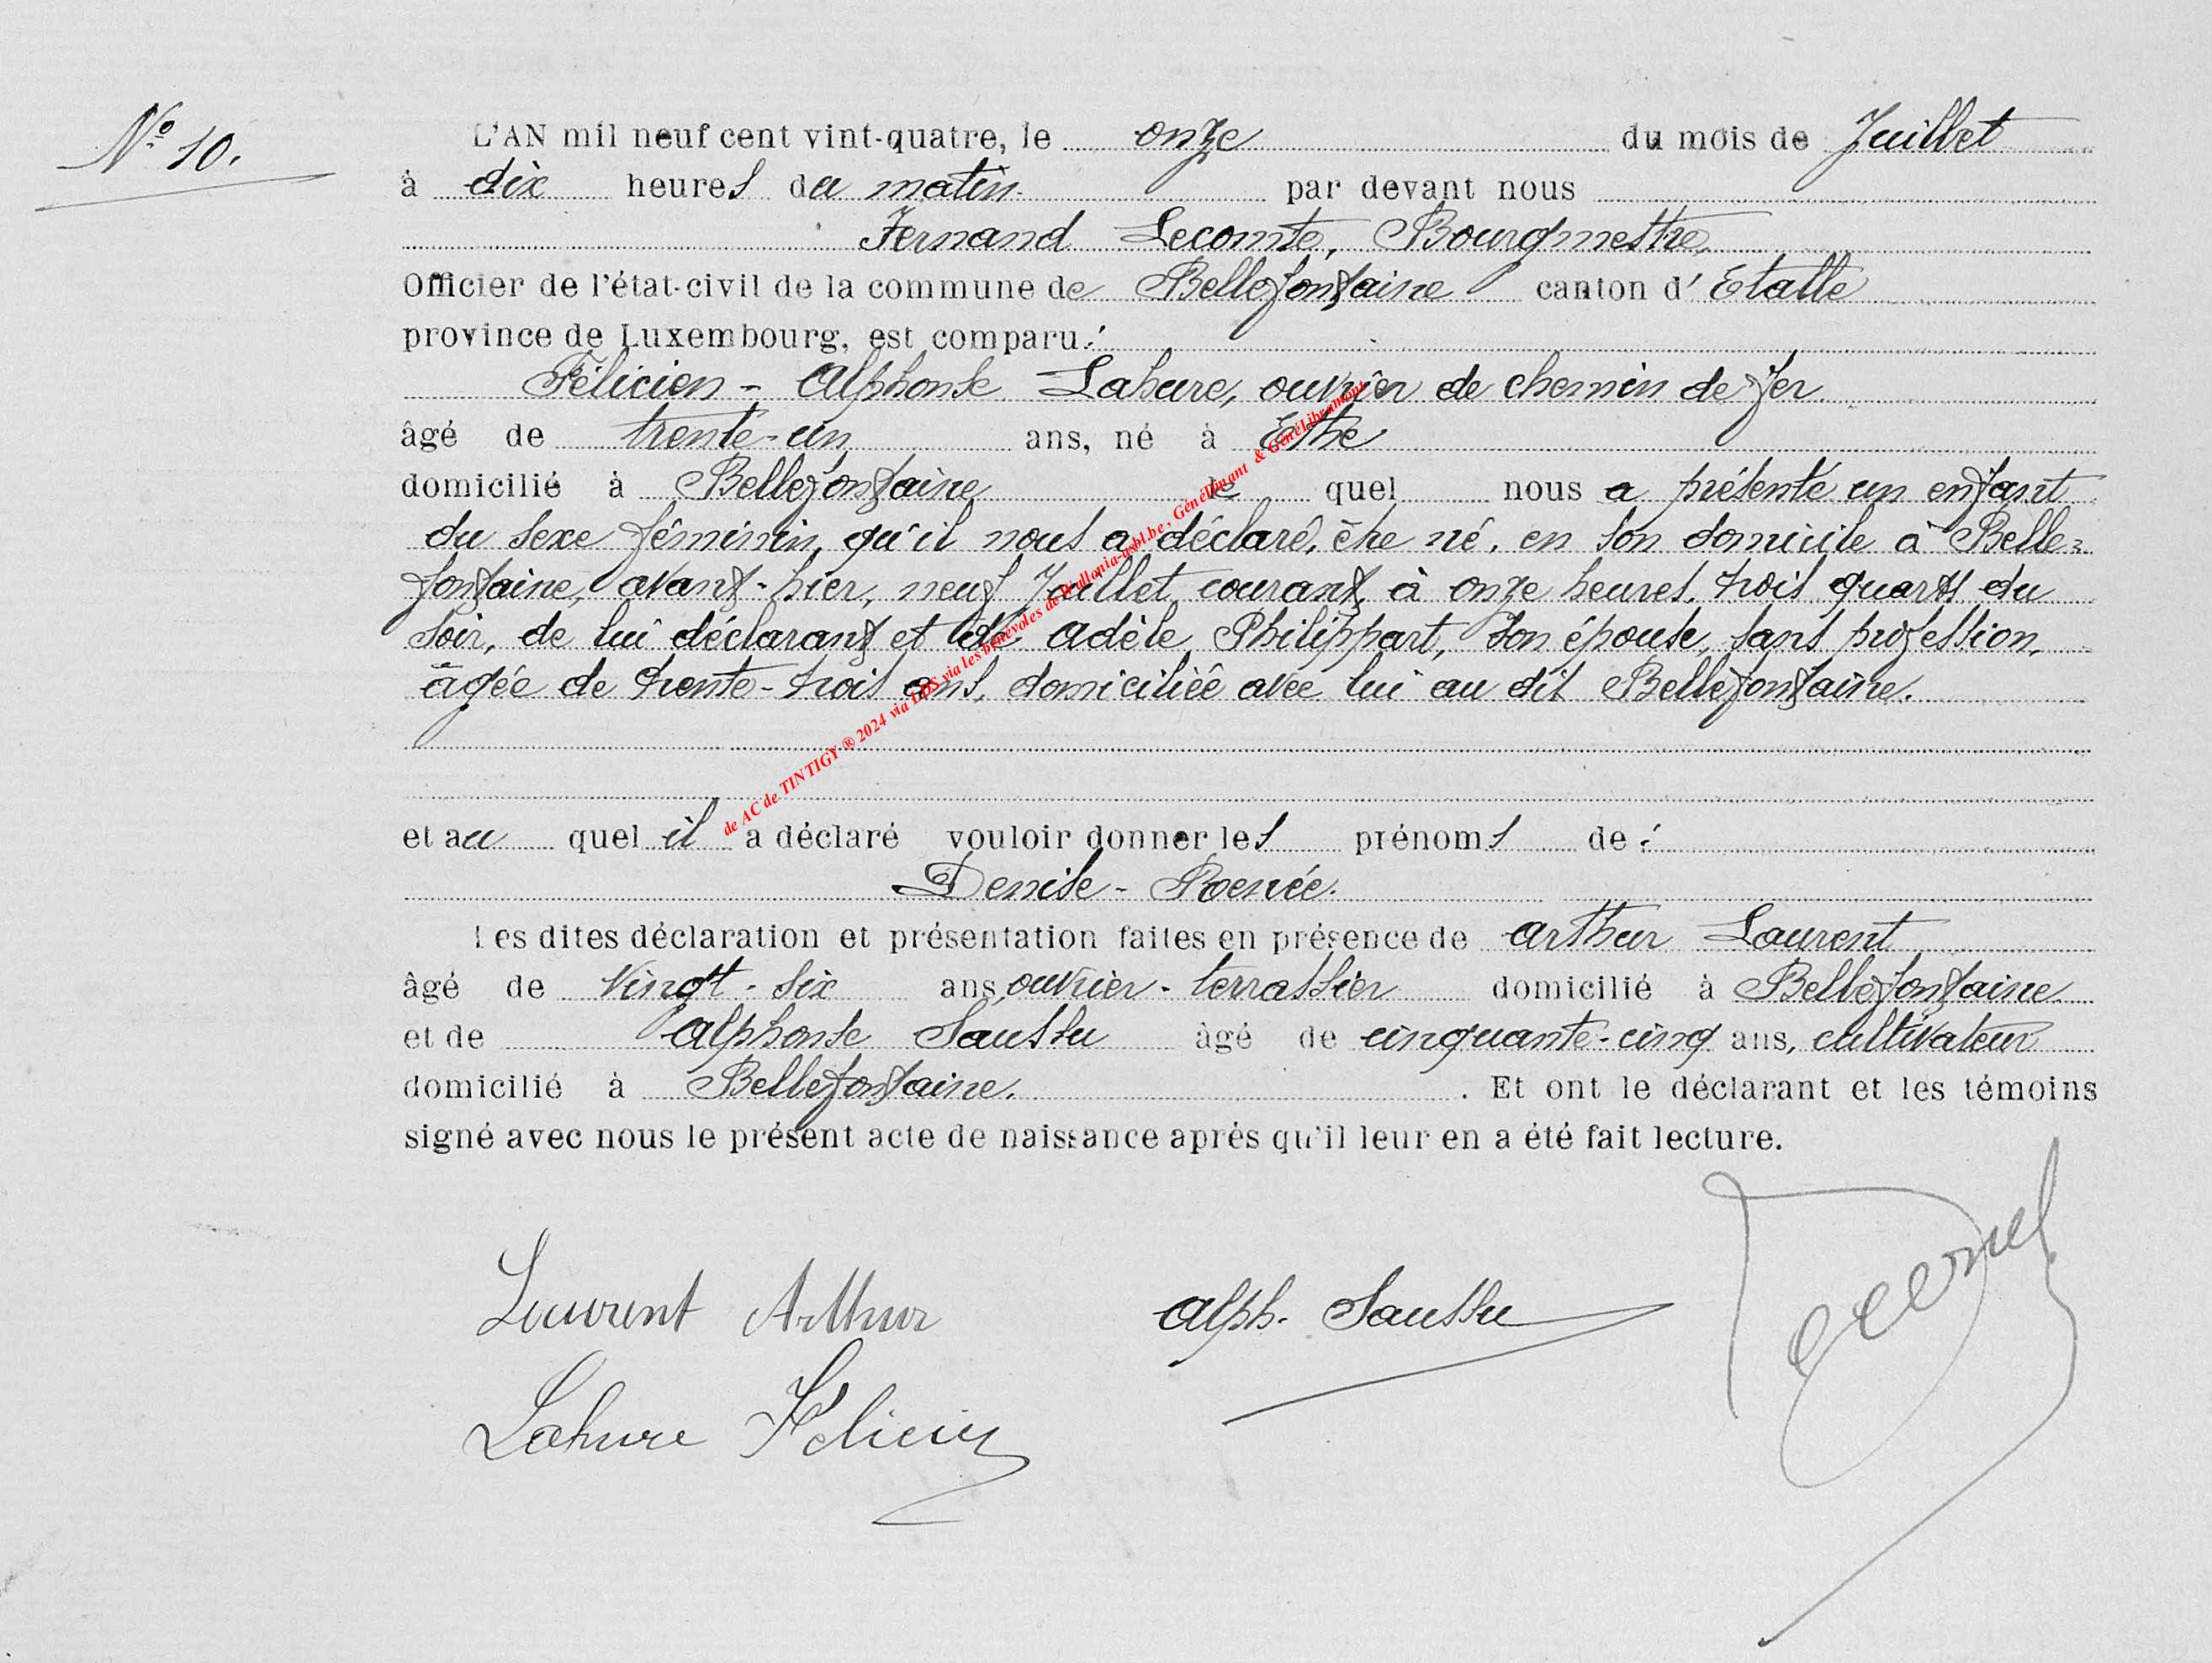 N° 10.
L'AN mil neuf cent vint-quatre, le onze du mois de Juillet
à dix heures du matin par devant nous
Fernand Lecomte, Bourgmestre,
Officier de l'état-civil de la commune de Bellefontaine canton d' Etalle
province de Luxembourg, est comparu :
Félicien - Alphonse Lahure, ouvrier de chemin de fer
âgé de trente-un ans, né à Ethe
domicilié à Bellefontaine le quel nous a présenté un enfant
du sexe féminin, qu'il nous a déclaré, être né, en son domicile à Belle=
fontaine, avant-hier, neuf Juillet courant, à onze heures, trois quarts du
soir, de lui déclarant et de Adèle Philippart, son épouse, sans profession,
âgée de trente-trois ans, domiciliée avec lui au dit Bellefontaine.
et au quel il a déclaré vouloir donner les prénoms de :
Denise - Renée.
Les dites déclaration et présentation faites en présence de Arthur Laurent
âgé de vingt-six ans, ouvrier-terrassier domicilié à Bellefontaine
et de Alphonse Saussu âgé de cinquante-cinq ans, cultivateur
domicilié à Bellefontaine. . Et ont le déclarant et les témoins
signé avec nous le présent acte de naissance après qu'il leur en a été fait lecture.
Laurent Arthur
Alph. Saussu
Lahure Félicien
de AC de TINTIGY ® 2024 via LDS via les bénévoles de Wallonia-asbl.be, GénéDinant & GénéLibramont